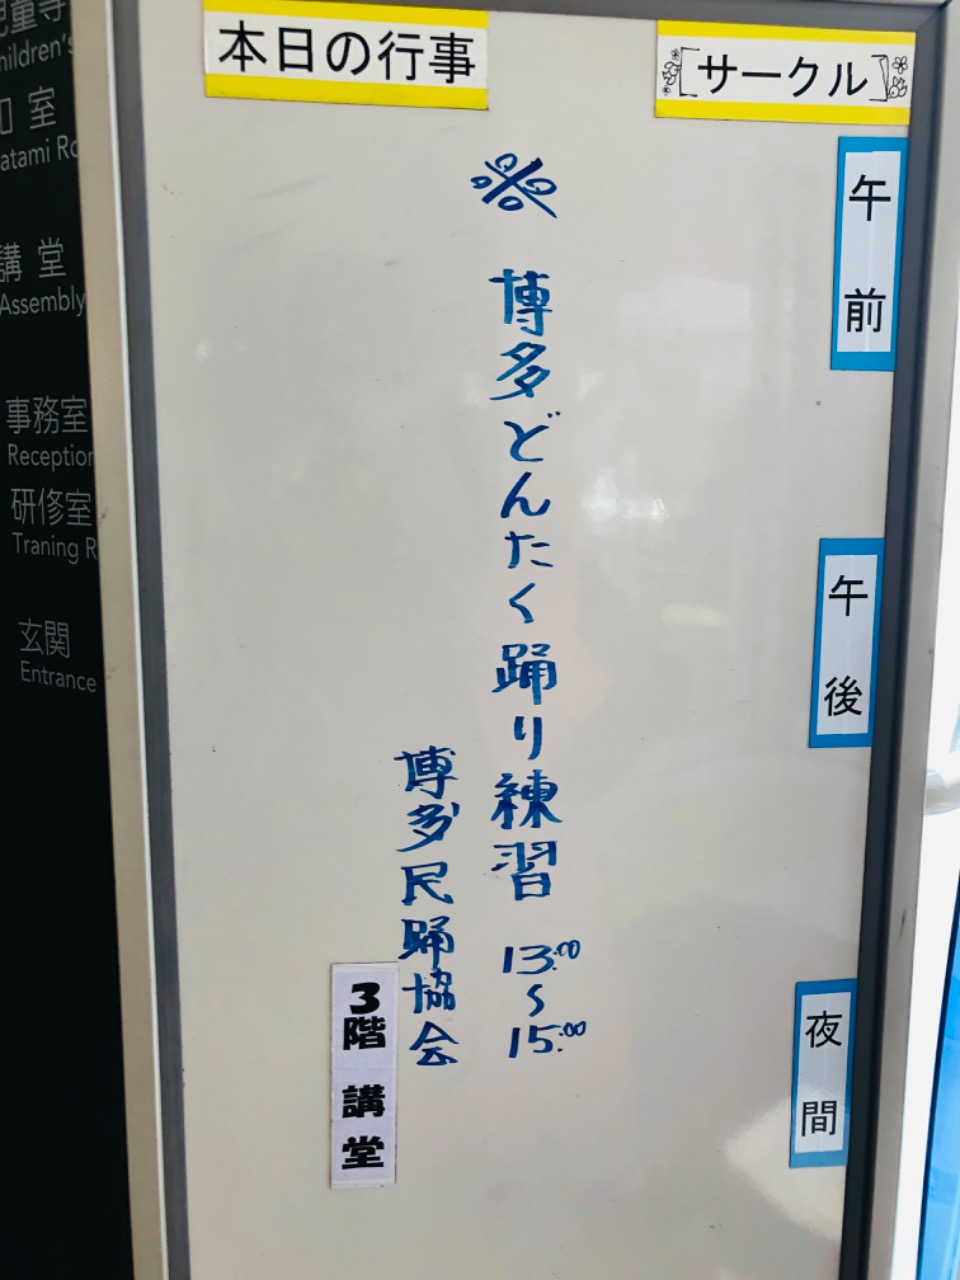 本日の行事
[サークル]
午前
午後
夜間
※
博多どんたく踊り練習 13:00〜15:00
博多民踊協会
3階 講堂
室
講堂
Assembly
事務室
Reception
研修室
Traning R
玄関
Entrance